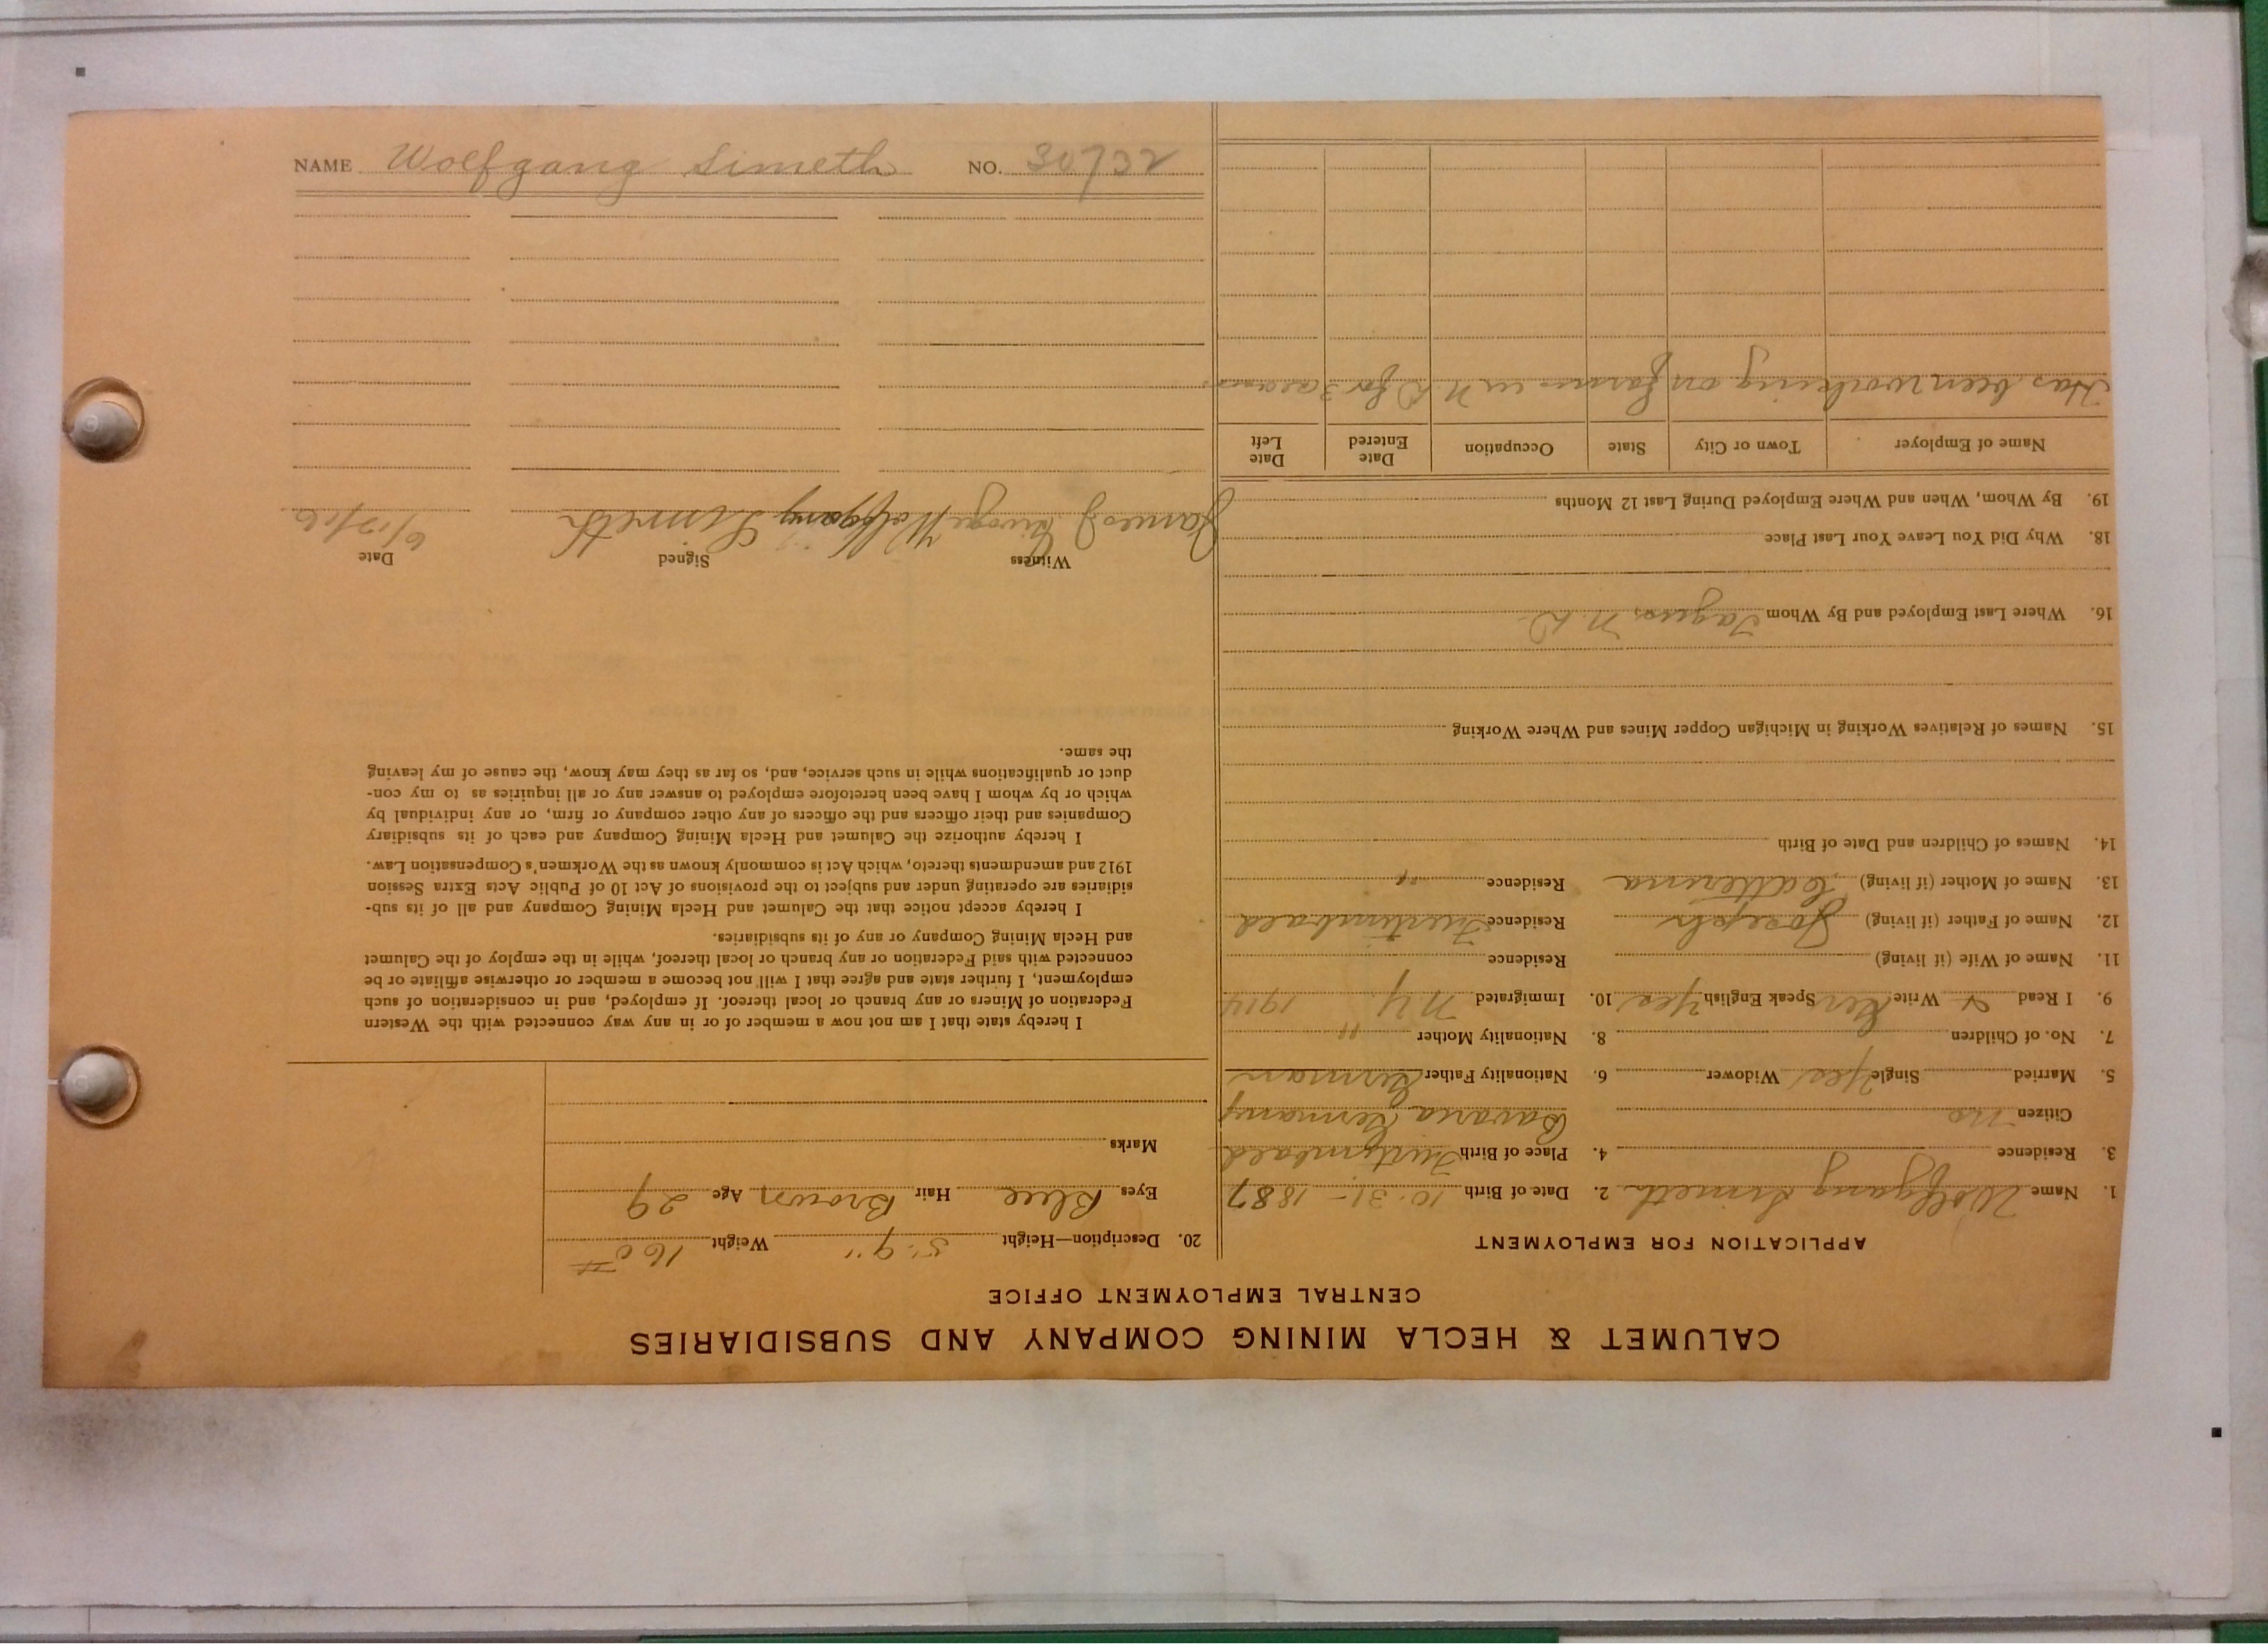 CALUMET & HECLA MINING COMPANY AND SUBSIDIARIES
CENTRAL EMPLOYMENT OFFICE
APPLICATION FOR EMPLOYMENT
1. Name Wolfgang Simeth 2. Date of Birth 10-31-1887
3. Residence 4. Place of Birth
Citizen no Bavaria Germany
5. Married Single Yes Widower 6. Nationality Father German
7. No. of Children 8. Nationality Mother "
9. I Read & Write Ger Speak English Yes 10. Immigrated N.Y. 1914
11. Name of Wife (if living) Residence
12. Name of Father (if living) Joseph Residence
13. Name of Mother (if living) Katterina Residence "
14. Names of Children and Date of Birth
15. Names of Relatives Working in Michigan Copper Mines and Where Working
16. Where Last Employed and By Whom N.D.
18. Why Did You Leave Your Last Place
19. By Whom, When and Where Employed During Last 12 Months
Name of Employer Town or City State Occupation Date Entered Date Left
Has been working on farms in N.D. for 3 years
20. Description—Height 5' 9" Weight 160 #
Eyes Blue Hair Brown Age 29
Marks
I hereby state that I am not now a member of or in any way connected with the Western
Federation of Miners or any branch or local thereof. If employed, and in consideration of such
employment, I further state and agree that I will not become a member or otherwise affiliate or be
connected with said Federation or any branch or local thereof, while in the employ of the Calumet
and Hecla Mining Company or any of its subsidiaries.
I hereby accept notice that the Calumet and Hecla Mining Company and all of its sub-
sidiaries are operating under and subject to the provisions of Act 10 of Public Acts Extra Session
1912 and amendments thereto, which Act is commonly known as the Workmen's Compensation Law.
I hereby authorize the Calumet and Hecla Mining Company and each of its subsidiary
Companies and their officers and the officers of any other company or firm, or any individual by
which or by whom I have been heretofore employed to answer any or all inquiries as to my con-
duct or qualifications while in such service, and, so far as they may know, the cause of my leaving
the same.
Witness Signed Date
James J. Wolfgang Simeth
NAME Wolfgang Simeth NO. 30732